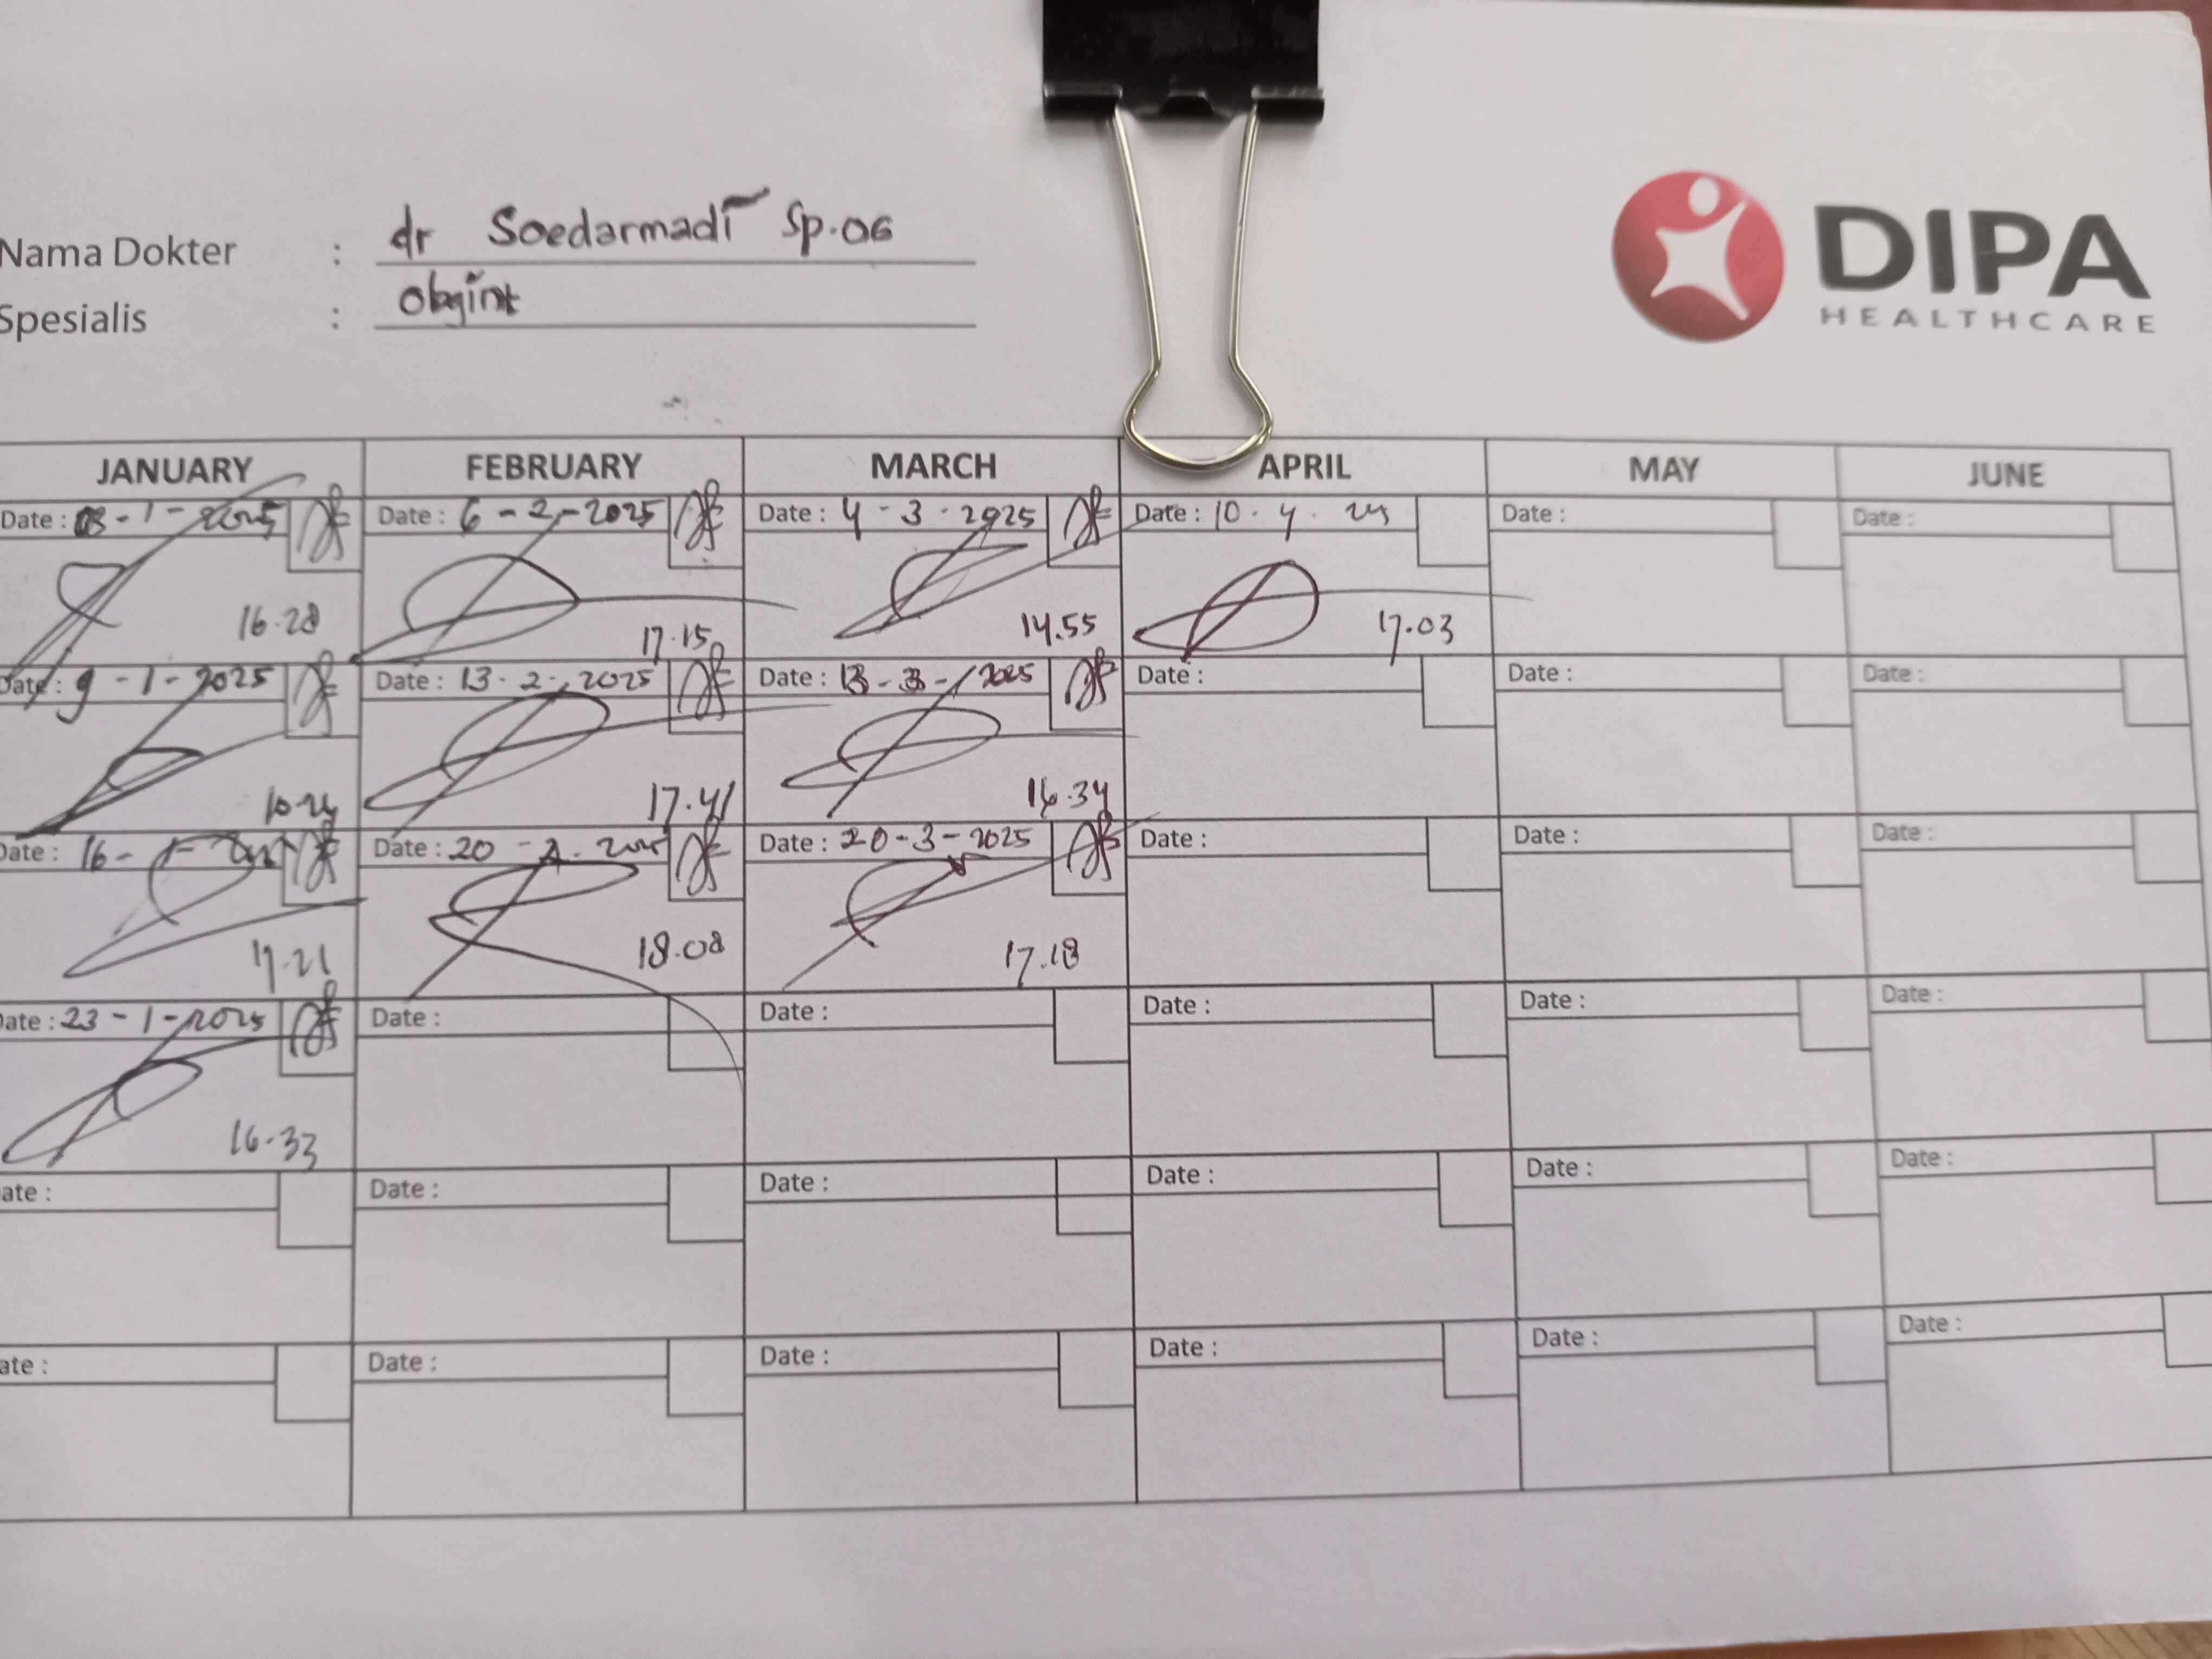 Nama Dokter : dr Soedarmadi Sp.OG
Spesialis : Obgint
DIPA
HEALTHCARE
JANUARY FEBRUARY MARCH APRIL MAY JUNE
Date : 03-1-2025 Date : 6-2-2025 Date : 4-3-2025 Date : 10.4. Date : Date :
16.28 17.15 14.55 17.03
Date : 9-1-2025 Date : 13-2-2025 Date : 13-3-2025 Date : Date : Date :
10.24 17.41 16.34
Date : 16-1- Date : 20-2-2025 Date : 20-3-2025 Date : Date : Date :
17.21 18.08 17.18
ate : 23-1-2025 Date : Date : Date : Date : Date :
16.33
ate : Date : Date : Date : Date : Date :
ate : Date : Date : Date : Date : Date :